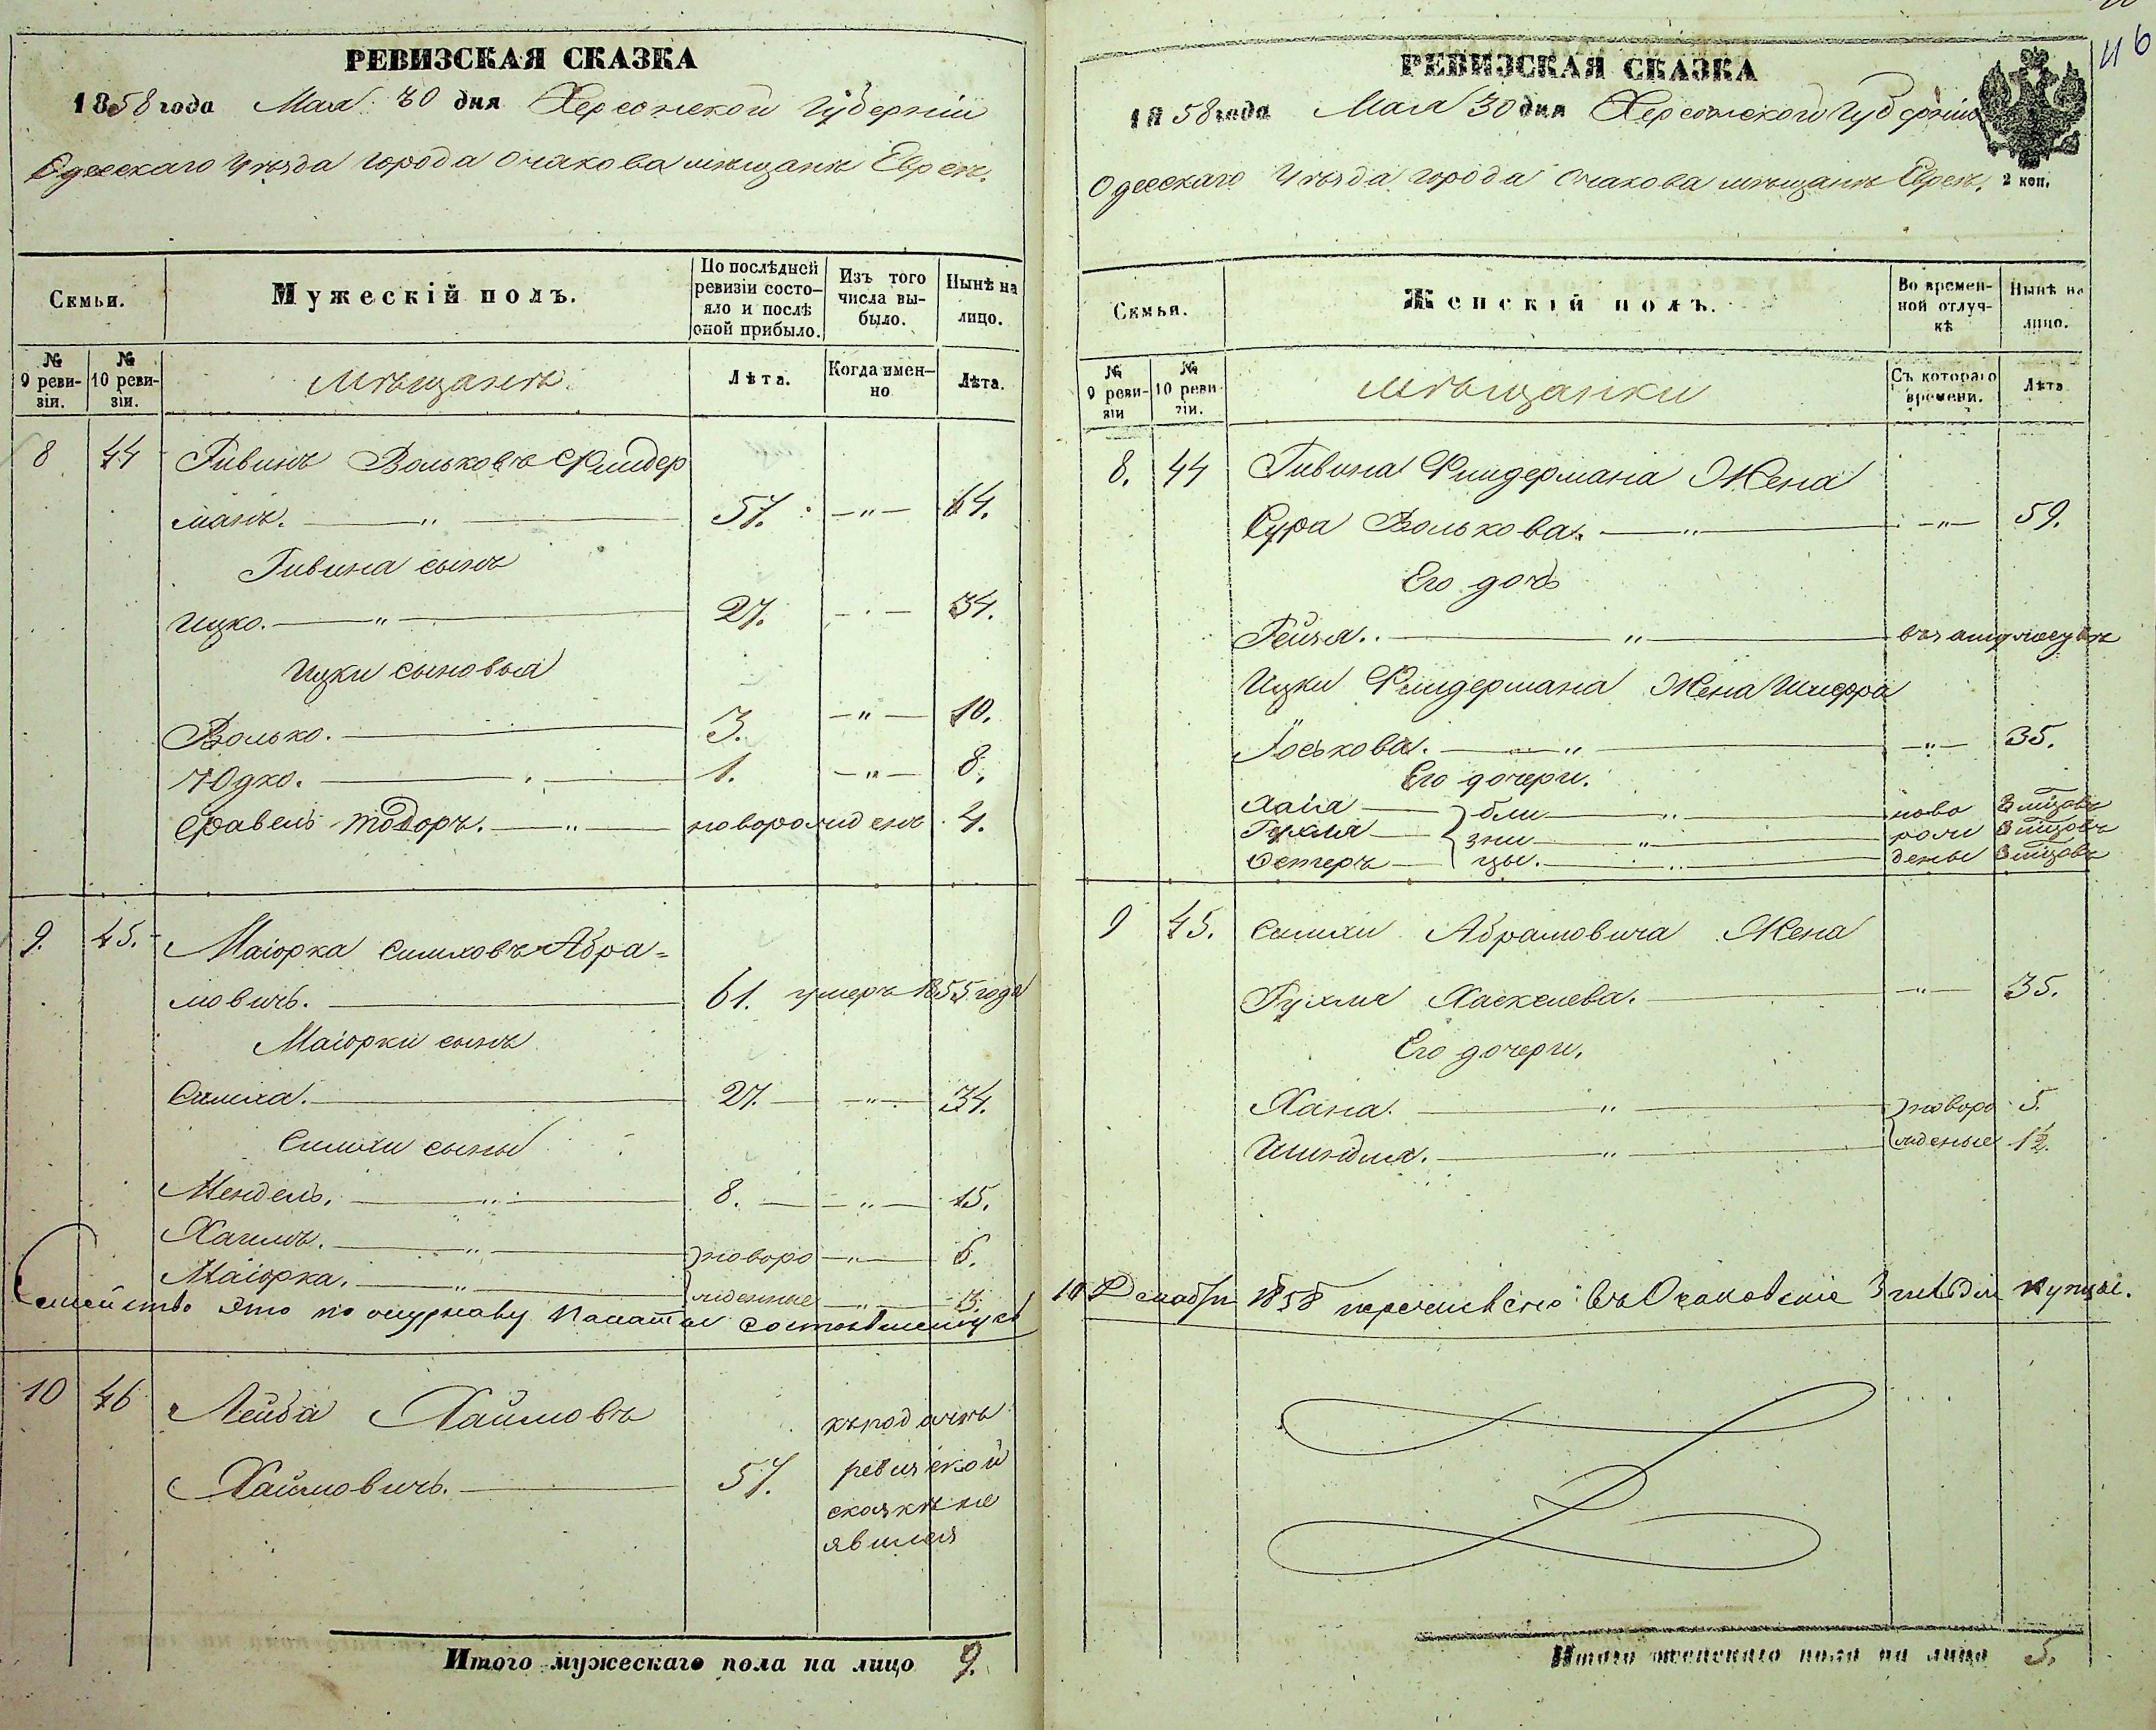 46
РЕВИЗСКАЯ СКАЗКА
1858 года Мая 30 дня Херсонской Губерніи
Одесскаго Уѣзда города Очакова мѣщанъ Евреевъ.
Семьи.
Мужескій полъ.
По послѣдней ревизіи состояло и послѣ оной прибыло.
Изъ того числа выбыло.
Нынѣ на лицо.
№ 9 ревизіи.
№ 10 ревизіи.
мѣщанъ
Лѣта.
Когда именно
Лѣта.
8 44 Гивинъ Вольковъ Флидер
манъ. 57. 64.
Гивина сынъ
Ицко. 27. 34.
Ицки сыновья
Волько. 3. 10.
Юдко. 1. 8.
новорожденъ 4.
9. 45. Маіорка Симховъ Абра=
мовичъ. 61. умеръ 1855 года
Маіорки сынъ
Симха. 27. 34.
Симхи сыны
Мендель. 8. 15.
Хаимъ. новоро 6.
Маіорка. жденные
Семейство это по журналу Палаты состоявшемуся
10 46 Лейба Хаимовъ
Хаимовичъ. 57.
къ подачѣ
ревизской
сказки не
явился
Итого мужескаго пола на лицо 9.
РЕВИЗСКАЯ СКАЗКА
1858 года Мая 30 дня Херсонской Губерніи
Одесскаго Уѣзда города Очакова мѣщанъ Евреевъ.
2 коп.
Семьи.
Женскій полъ.
Во временной отлучкѣ
Нынѣ на лицо.
№ 9 ревизіи
№ 10 ревизіи.
мѣщанки
Съ котораго времени.
Лѣта
8. 44 Гивина Флидермана Жена
Сура Волькова. 59.
Его дочь
Гейзя. въ замужествѣ
Ицки Флидермана Жена Шифра
Іоськова. 35.
Его дочери.
Хаія бли ново
Рухля зни рож
Эстеръ цы. дены
9 45. Симхи Абрамовича Жена
Рухля Хаскелева. 35.
Его дочери.
Хана. новоро 5.
Шиндля. жденые 1½.
10 Декабря 1858 перечислено въ Очаковские 3 гильдіи купцы.
Итого женскаго пола на лицо 5.